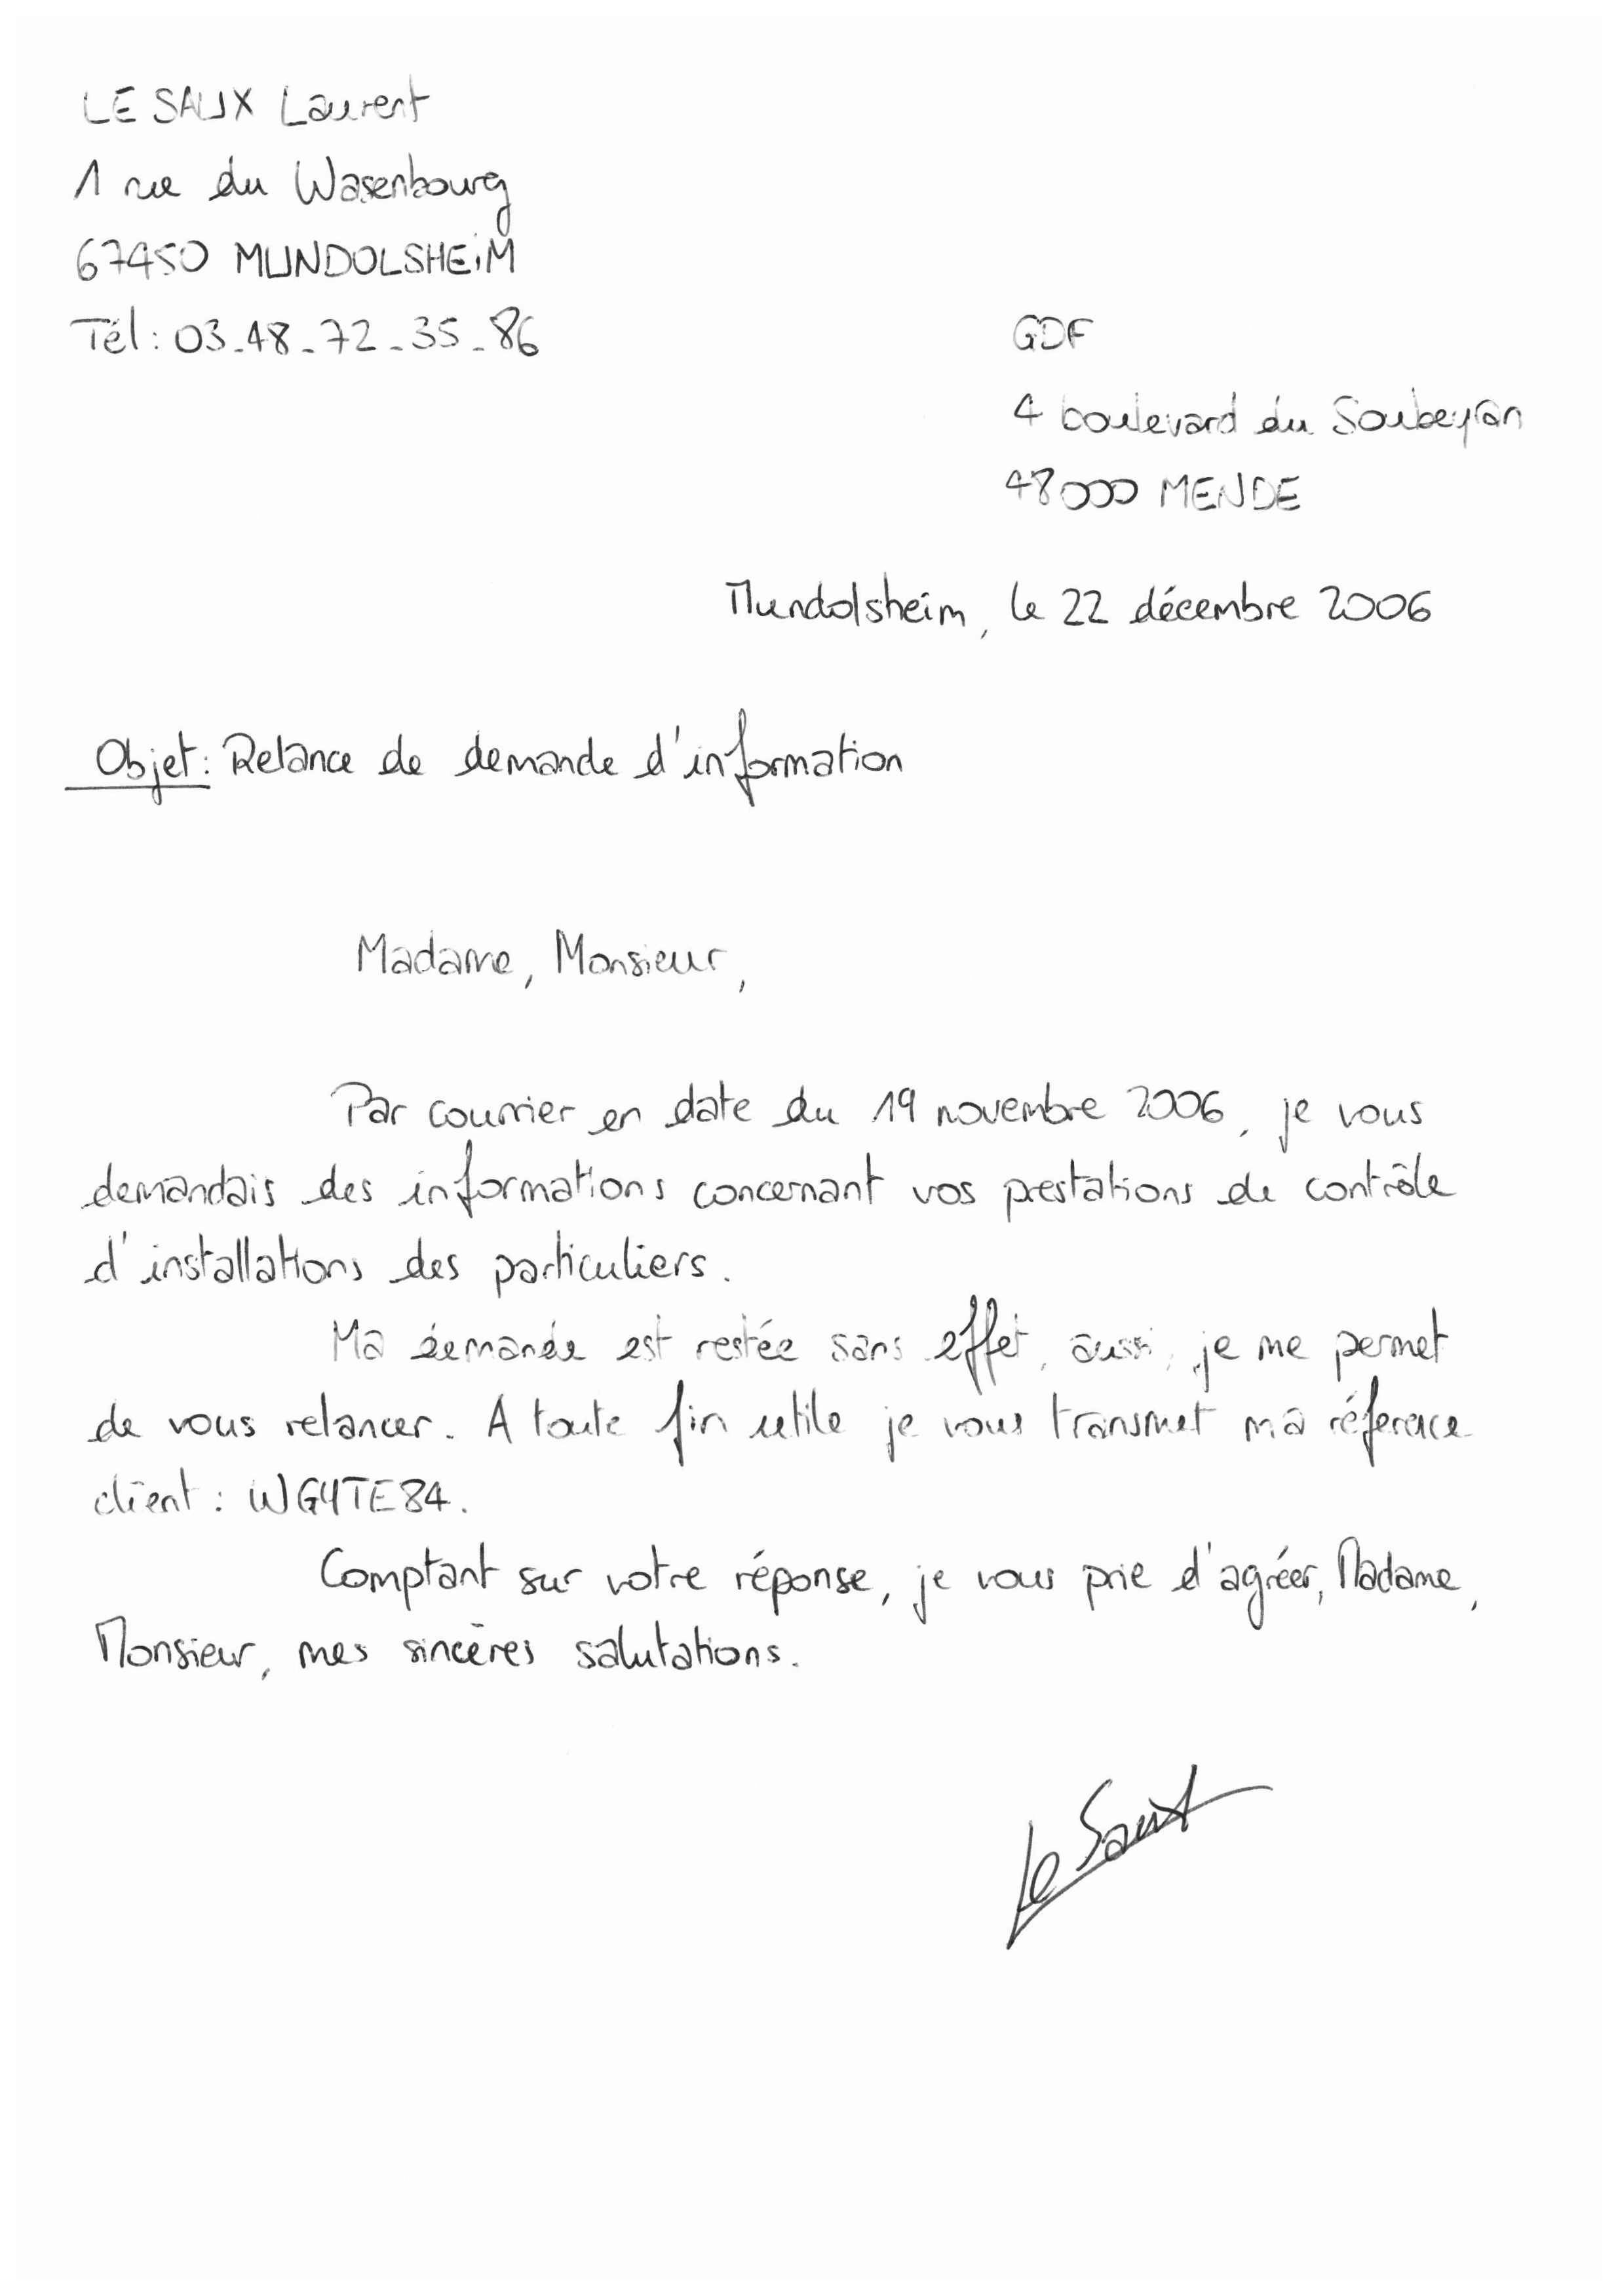 LE SAUX Laurent
1 rue du Wasenbourg
67450 MUNDOLSHEiM
Tél : 03_48_72_35_86
GDF
4 boulevard du Soubeyran
48000 MENDE
Mundolsheim, le 22 décembre 2006
Objet : Relance de demande d'information
Madame, Monsieur,
Par courrier en date du 19 novembre 2006, je vous
demandais des informations concernant vos prestations de contrôle
d'installations des particuliers.
Ma demande est restée sans effet, aussi, je me permet
de vous relancer. A toute fin utile je vous transmet ma réference
client : WG4TE84.
Comptant sur votre réponse, je vous prie d'agréer, Madame,
Monsieur, mes sincères salutations.
Le Saux